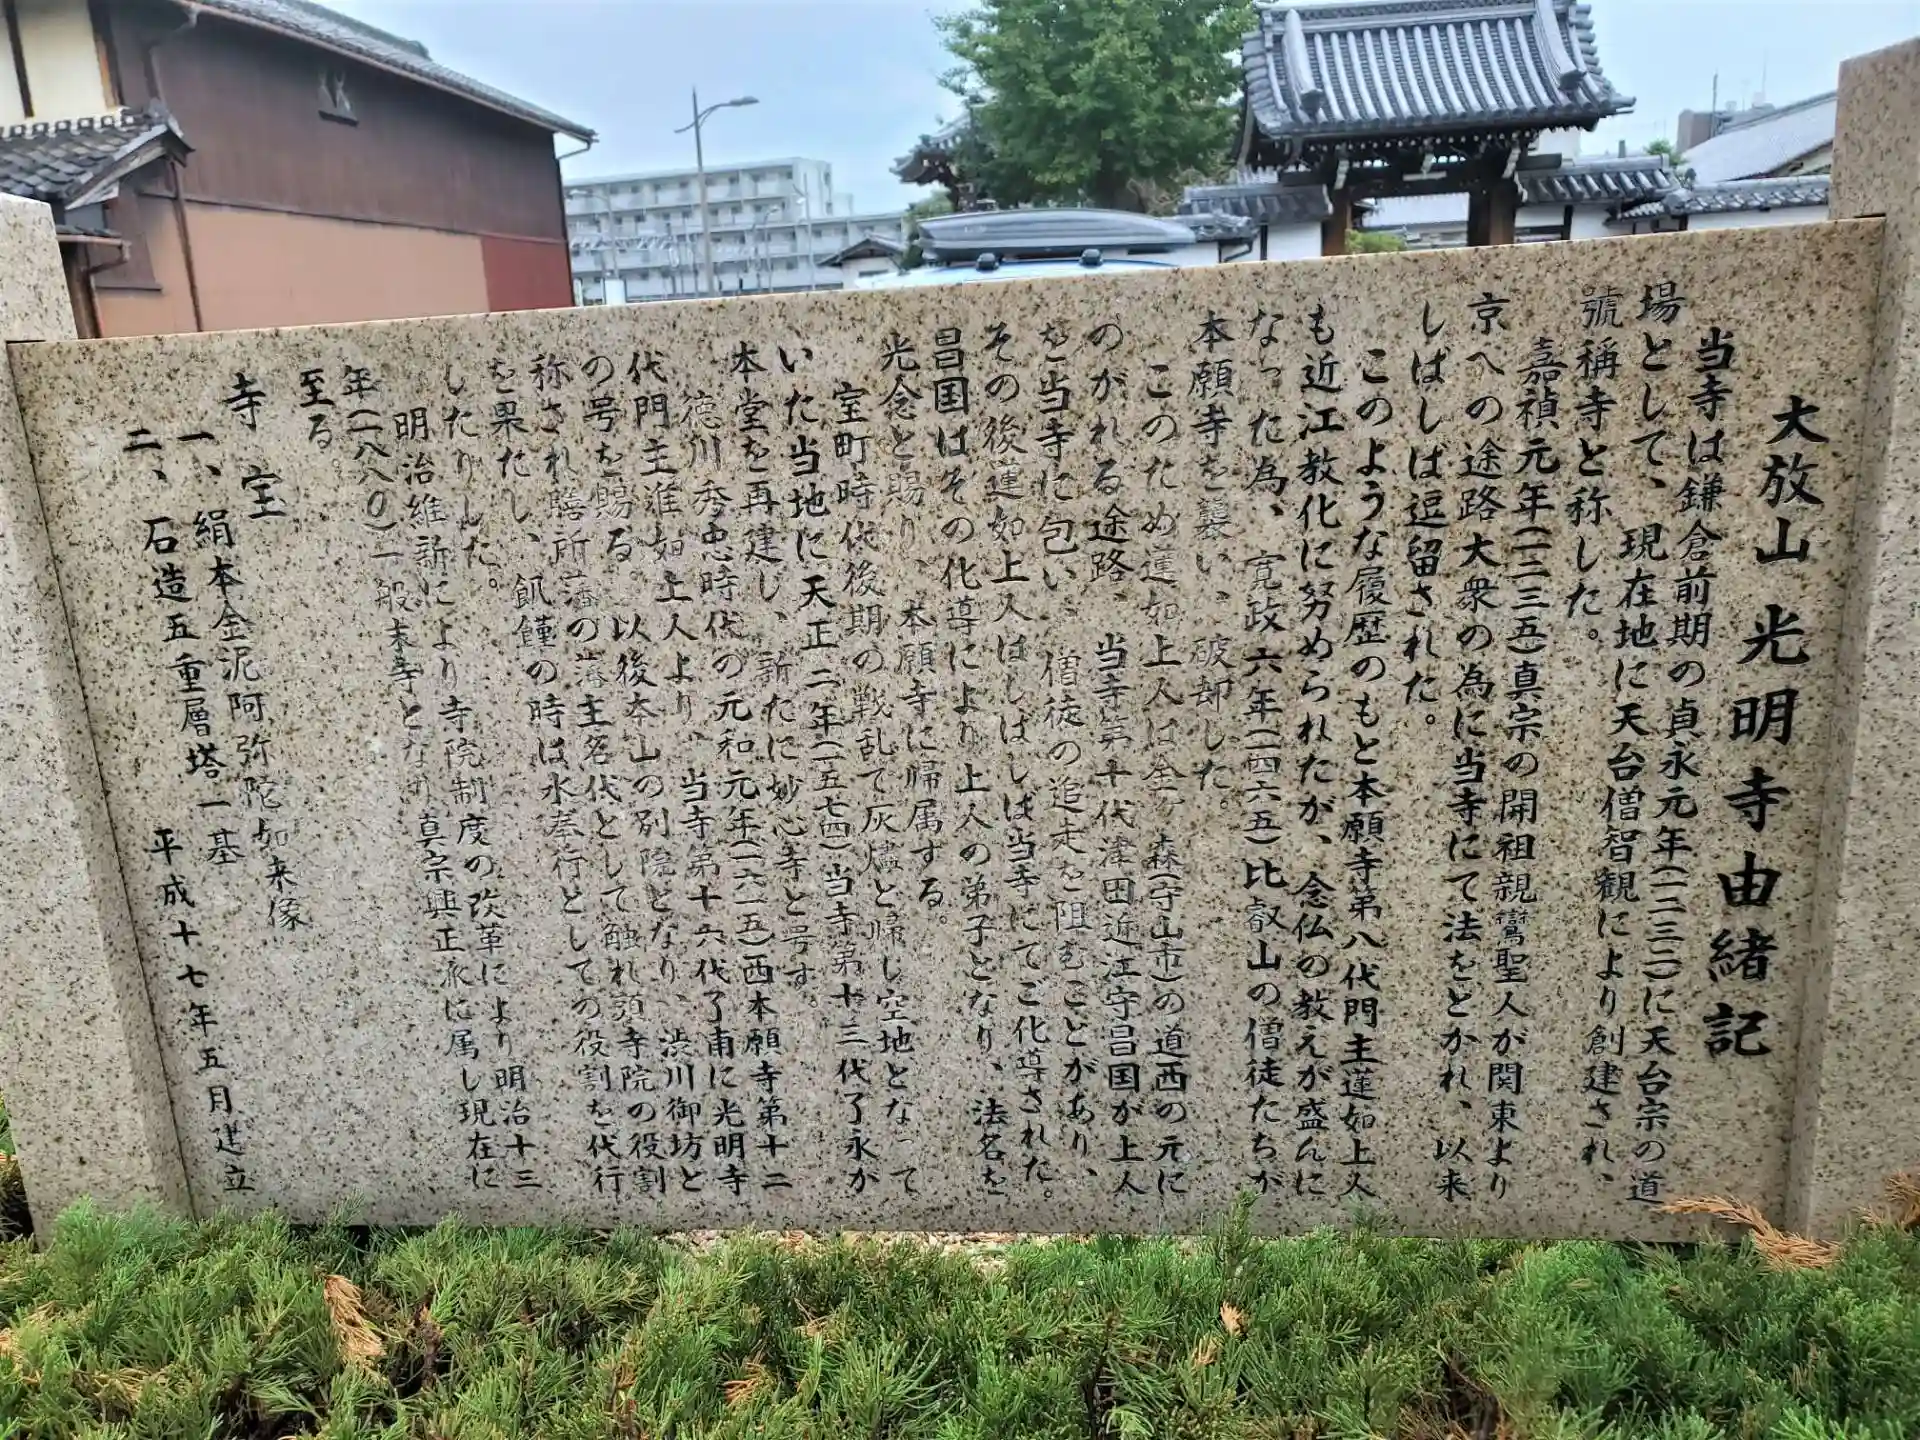 大放山 光明寺由緒記
当寺は鎌倉前期の貞永元年(一二三二)に天台宗の道
場として、現在地に天台僧智観により創建され、
號稱寺と称した。
嘉禎元年(一二三五)真宗の開祖親鸞聖人が関東より
京への途路大衆の為に当寺にて法をとかれ、以来
しばしば逗留された。
このような履歴のもと本願寺第八代門主蓮如上人
も近江教化に努められたが、念仏の教えが盛んに
なった為、寛政六年(一四六五)比叡山の僧徒たちが
本願寺を襲い、破却した。
このため蓮如上人は金ヶ森(守山市)の道西の元に
のがれる途路、当寺第十代津田近江守昌国が上人
を当寺に包い、僧徒の追走を阻むことがあり、
その後蓮如上人はしばしば当寺にてご化導された。
昌国はその化導により上人の弟子となり、法名を
光念と賜り、本願寺に帰属する。
室町時代後期の戦乱で灰燼と帰し空地となって
いた当地に天正二年(一五七四)当寺第十三代了永が
本堂を再建し、新たに妙心寺と号す。
徳川秀忠時代の元和元年(一六一五)西本願寺第十二
代門主准如上人より、当寺第十六代了甫に光明寺
の号を賜る。以後本山の別院となり、渋川御坊と
称され膳所藩の藩主名代として触れ頭寺院の役割
を果たし、飢饉の時は水奉行としての役割を代行
したりした。
明治維新により寺院制度の改革により明治十三
年(一八八〇)一般末寺となり真宗興正派に属し現在に
至る。
寺宝
一、絹本金泥阿弥陀如来像
二、石造五重層塔一基
平成十七年五月建立